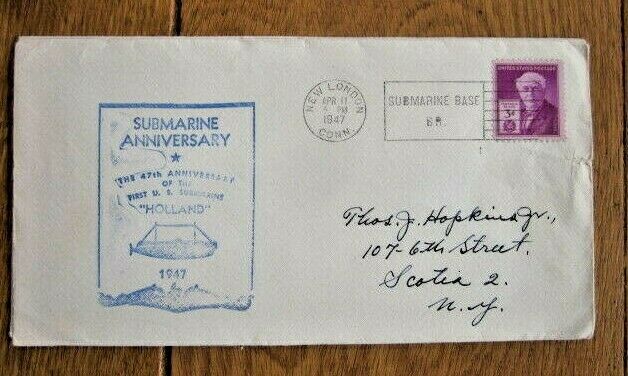 SUBMARINE
ANNIVERSARY
THE 47th ANNIVERSARY
OF THE
FIRST U. S. SUBMARINE
"HOLLAND"
1947
NEW LONDON
APR 11
PM
1947
CONN.
SUBMARINE BASE
BR.
UNITED STATES POSTAGE
3¢
Thos. J. Hopkins Jr.,
107-6th Street.
Scotia 2.
N.Y.